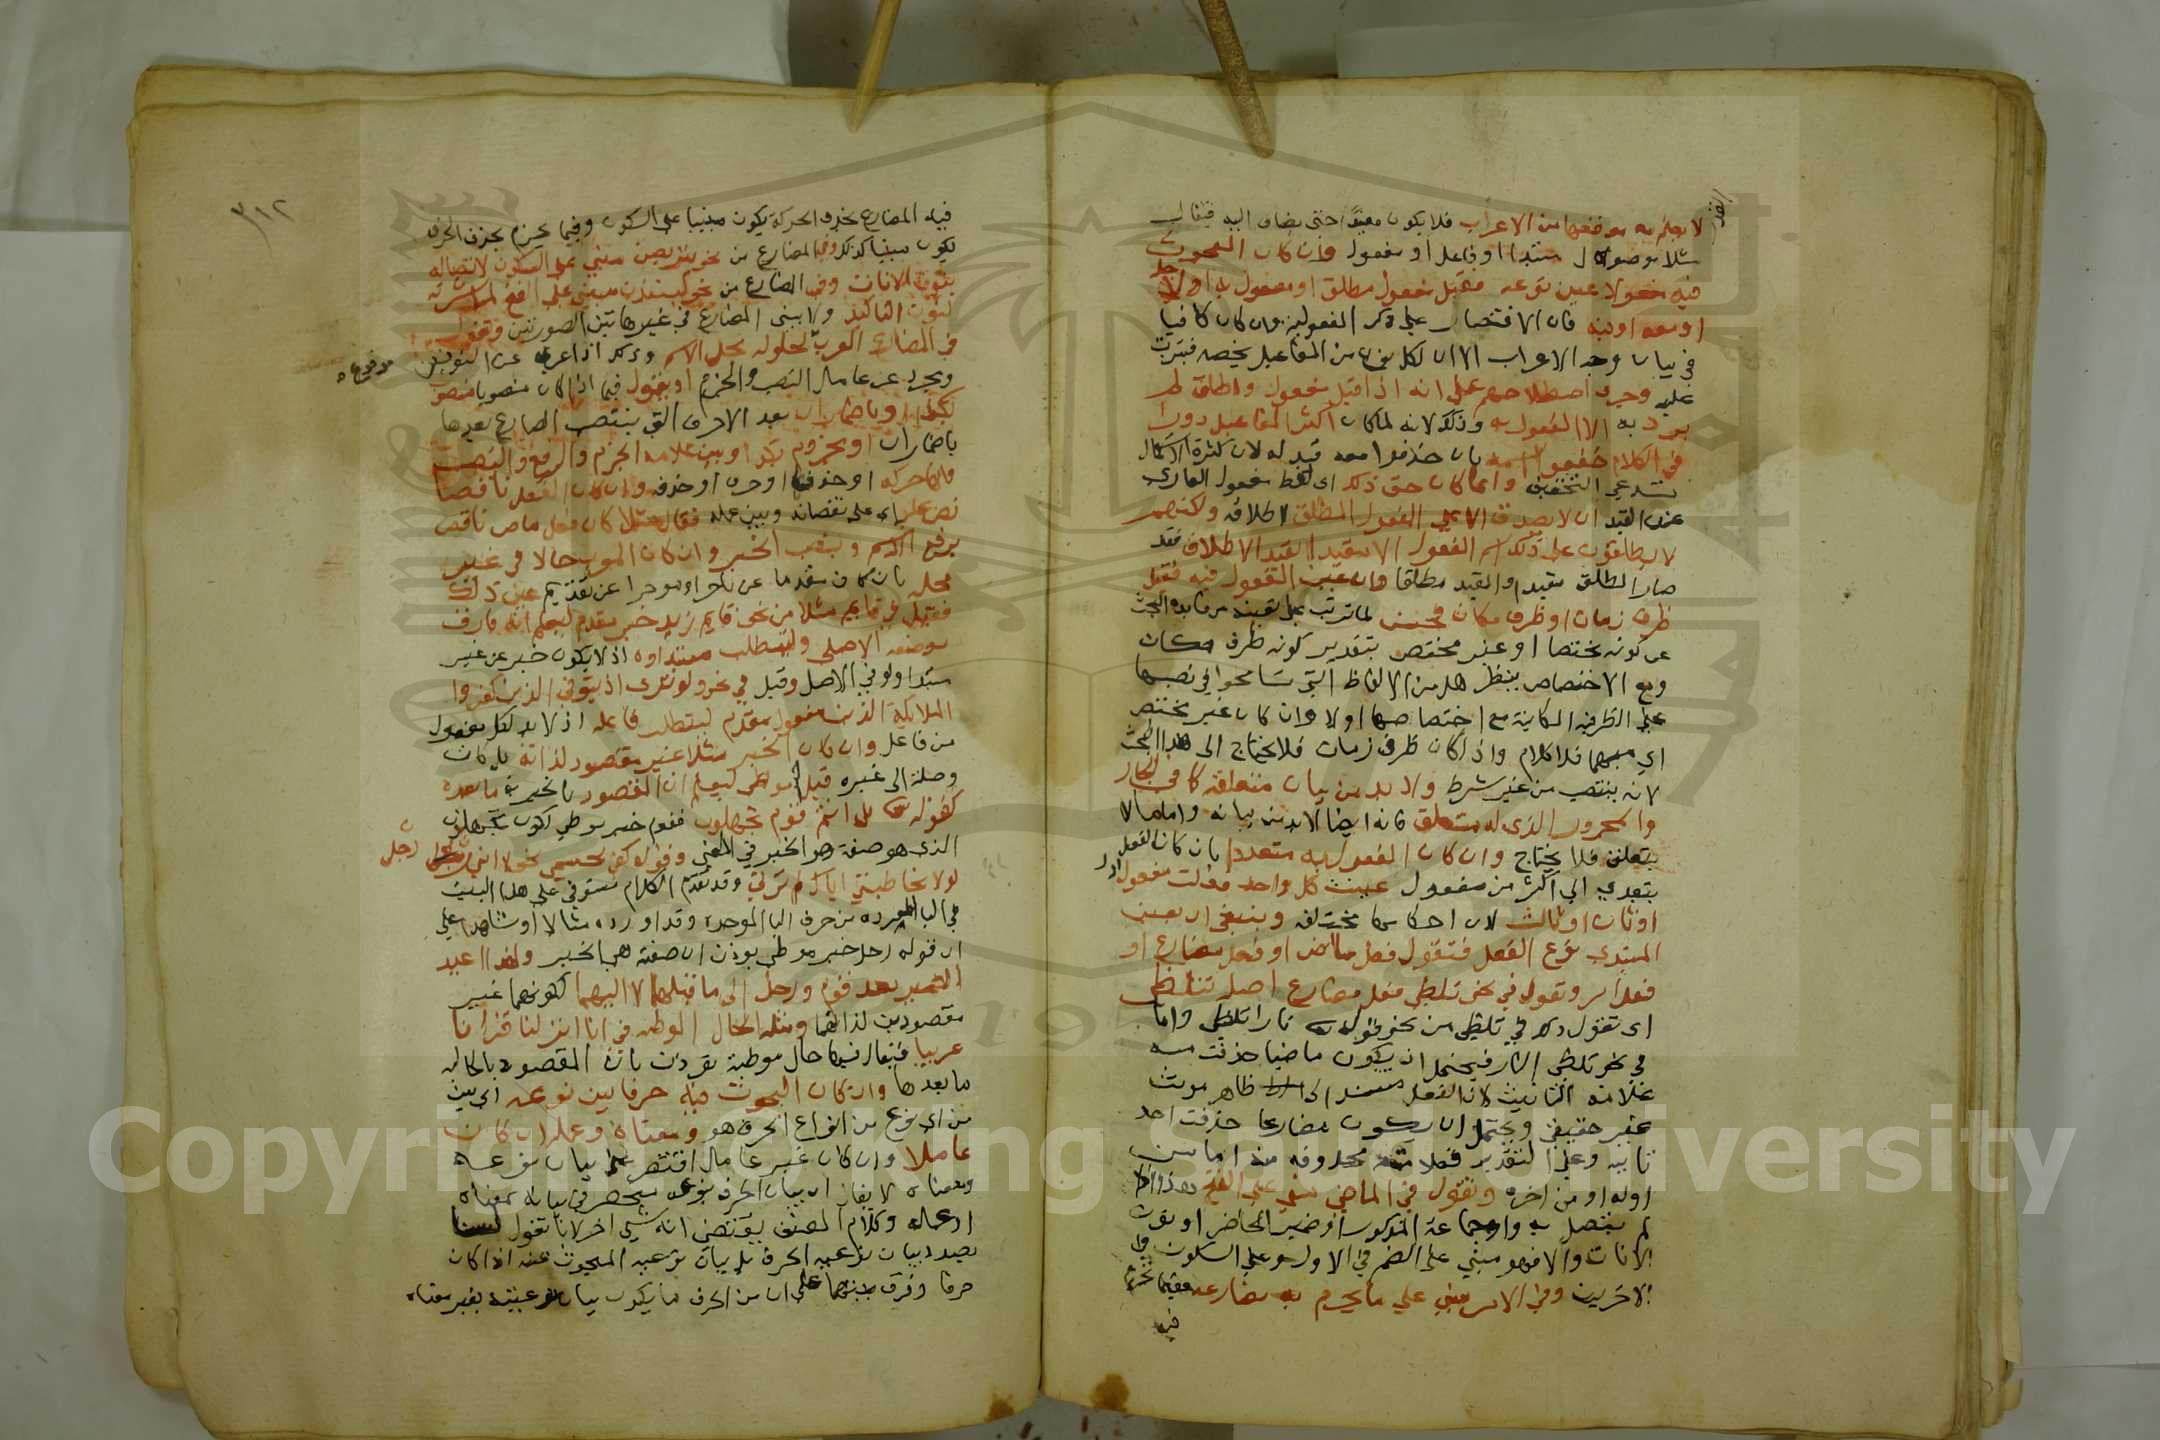 لا يعلم به موقعها من الاعراب فلا يكون مفيدا حتى يضاف اليه فيقال
مثلا موصول مبتدا او فاعل او مفعول وان كان المبحوث
فيه مفعولا عين نوعه فقيل مفعول مطلق او مفعول به او لاجله
او معه او فيه فان الاقتصار على ذكر المفعولية وان كان كافيا
في بيان وجه الاعراب الا ان لكل نوع من المفاعيل يخصه فيترتب
عليه وجرى اصطلاحهم على انه اذا قيل مفعول واطلق لم
يرد به الا المفعول به وذلك لانه لما كان اكثر المفاعيل دورا
في الكلام خففوا اسمه بان حذفوا معه قيد له لان كثرة الاستعمال
تستدعي التخفيف وانما كان حق ذلك اي لفظ مفعول العاري
عن القيد ان لا يصدق الا على المفعول المطلق لاطلاقه ولكنهم
لا يطلقون على ذلك اسم المفعول الا مقيدا بقيد الاطلاق فقد
صار المطلق مقيدا والمقيد مطلقا وان عين المفعول فيه فقيل
ظرف زمان او ظرف مكان فحسن لما ترتب على تعيينه من فايدة البحث
عن كونه مختصا او غير مختص بتقدير كونه ظرف مكان
ومع الاختصاص ينظر هل من الالفاظ التي تسامحوا في نصبها
على الظرفية المكانية مع اختصاصها او لا وان كان غير مختص
اي مبهما فلا كلام واذا كان ظرف زمان فلا يحتاج الى هذا البحث
لانه ينتصب من غير شرط ولا بد من بيان متعلقه كما في الجار
والمجرور الذي له متعلق فانه ايضا لا بد من بيانه واما ما لا
يتعلق فلا يحتاج وان كان المفعول به متعددا بان كان الفعل
يتعدى الى اكثر من مفعول عينت كل واحد فقلت مفعول اول
او ثان او ثالث لان احكامها مختلفة وينبغي ان يعين
المبتدي نوع الفعل فتقول فعل ماض او فعل مضارع او
فعل امر وتقول في نحو تلظى فعل مضارع اصله تتلظى
اي تقول ذلك في تلظى من نحو قوله نارا تلظى واما
في نحو تلظى النار فيحتمل ان يكون ماضيا حذفت منه
علامة التانيث لان الفعل مسند الى ظاهر مونث
غير حقيقي ويحتمل ان يكون مضارعا حذفت احد
تاييه وعلى التقدير فعلامته محذوفة منه اما من
اوله او من اخره وتقول في الماضي مبني على الفتح هذا اذا
لم يتصل به واو جماعة الذكور او ضمير الحاضر او نون
الاناث والا فهو مبني على الضم في الاول وعلى السكون في
الاخرين وفي الامر مبني على ما يجزم به مضارعه ففيما يجزم
فيه
٣١٢
فيه المضارع بحذف الحركة يكون مبنيا على السكون وفيما يجزم بحذف الحرف
يكون مبنيا كذلك وفي المضارع من نحو يتربصن مبني على السكون لاتصاله
بنون الاناث وفي المضارع من نحو لينبذن مبني على الفتح لمباشرته
لنون التاكيد ولا يبنى المضارع في غير هاتين الصورتين وتقول
في المضارع المعرب لحلوله محل الاسم وذلك اذا عري عن النونين
مرفوع
وتجرد عن عامل النصب والجزم او يقول فيما اذا كان منصوبا منصوب
بكذا او باضمار ان بعد الاحرف التي ينتصب المضارع بعدها
باضمار ان او مجزوم بكذا وبين علامة الجزم والرفع والنصب
فاما حركة او حذفها او حرف او حذفه وان كان الفعل ناقصا
نص عليه اي على نقصانه وبين عمله فقال مثلا كان فعل ماض ناقص
يرفع الاسم وينصب الخبر وان كان المعرب حالا في غير
محله بان كان متقدما عن تاخر او موخرا عن تقديم عين ذلك
فقيل في قايم مثلا من نحو قايم زيد خبر مقدم ليعلم انه فارق
موضعه الاصلي وليتطلب مبتداوه اذ لا يكون خبر عن غير
مبتدا ولو في الاصل وقيل في نحو ولو ترى اذ يتوفى الذين كفروا
الملائكة الذين مفعول مقدم ليتطلب فاعله اذ لا بد لكل مفعول
من فاعل وان كان الخبر مثلا غير مقصود لذاته بل كان
وصلة الى غيره قيل خبر موطئ ليعلم ان المقصود بالخبرية ما بعده
كقوله بل انتم قوم تجهلون فقوم خبر موطئ لكون تجهلون
الذي هو صفته هو الخبر في المعنى وقوله كفى بجسمي نحولا انني رجل
لولا مخاطبتي اياك لم ترني وقد تقدم الكلام مستوفى على هذا البيت
في الباء المفردة من حرف الباء الموحدة وقد اورده مثالا او شاهدا على
ان قوله رجل خبر موطئ يوذن ان صفته هي الخبر ولهذا اعيد
الضمير بعد قوم ورجل الى ما قبلهما لا اليهما لكونهما غير
مقصودين لذاتهما ومثله الحال الموطئة في انا انزلناه قرانا
عربيا فيقال فيها حال موطئة يوذن بان المقصود بالحالية
ما بعدها وان كان المبحوث فيه حرفا بين نوعه اي بين
من اي نوع من انواع الحرف هو ومعناه وعمله ان كان
عاملا وان كان غير عامل اقتصر على بيان نوعه
ومعناه لا يقال ان بيان الحرف نوعه منحصر في بيانه بمعناه
او عمله وكلام المصنف يقتضي انه شيء اخر لانا نقول لسنا
بصدد بيان نوعية الحرف بل بيان نوعية المبحوث عنه اذا كان
حرفا وفرق بينهما على ان من الحرف ما يكون بيان نوعيته بغير معناه
Copyright © King Saud University
1957